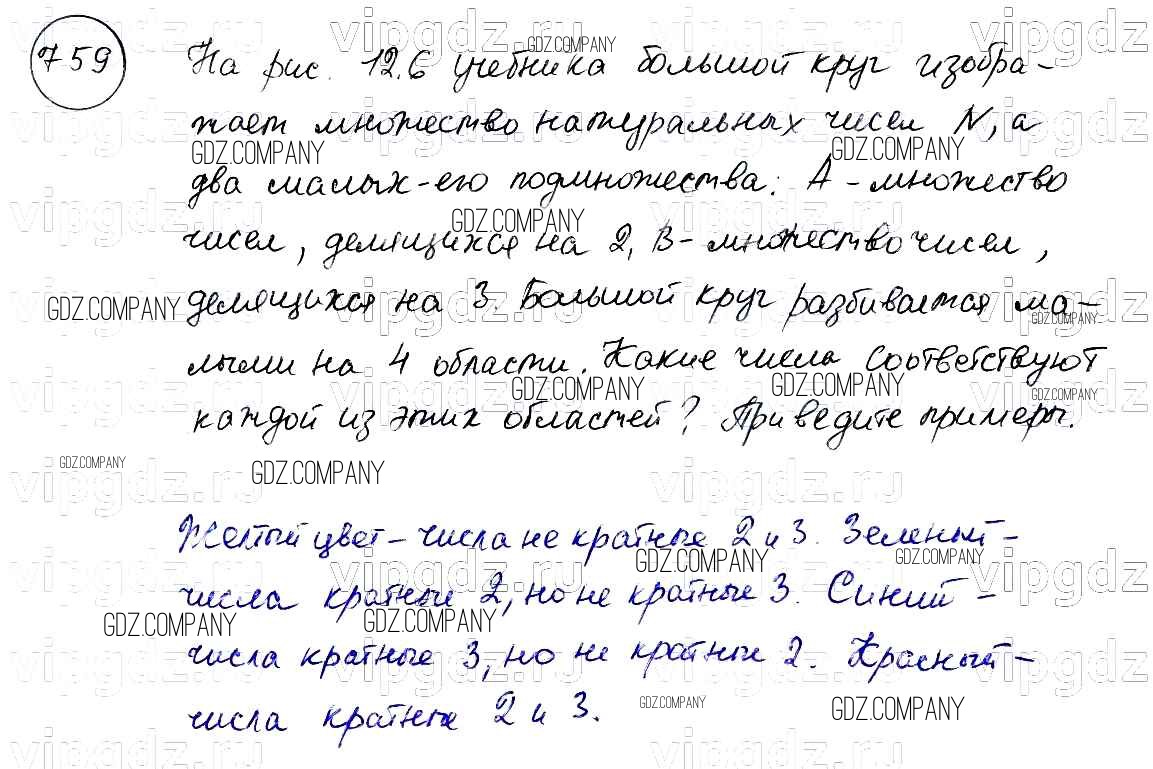 759
На рис. 12.6 учебника большой круг изобра-
жает множество натуральных чисел N, а
два малых - его подмножества: А - множество
чисел, делящихся на 2, В - множество чисел,
делящихся на 3. Большой круг разбивается ма-
лыми на 4 области. Какие числа соответствуют
каждой из этих областей? Приведите примеры.
Желтый цвет - числа не кратные 2 и 3. Зеленый -
числа кратные 2, но не кратные 3. Синий -
числа кратные 3, но не кратные 2. Красный -
числа кратные 2 и 3.